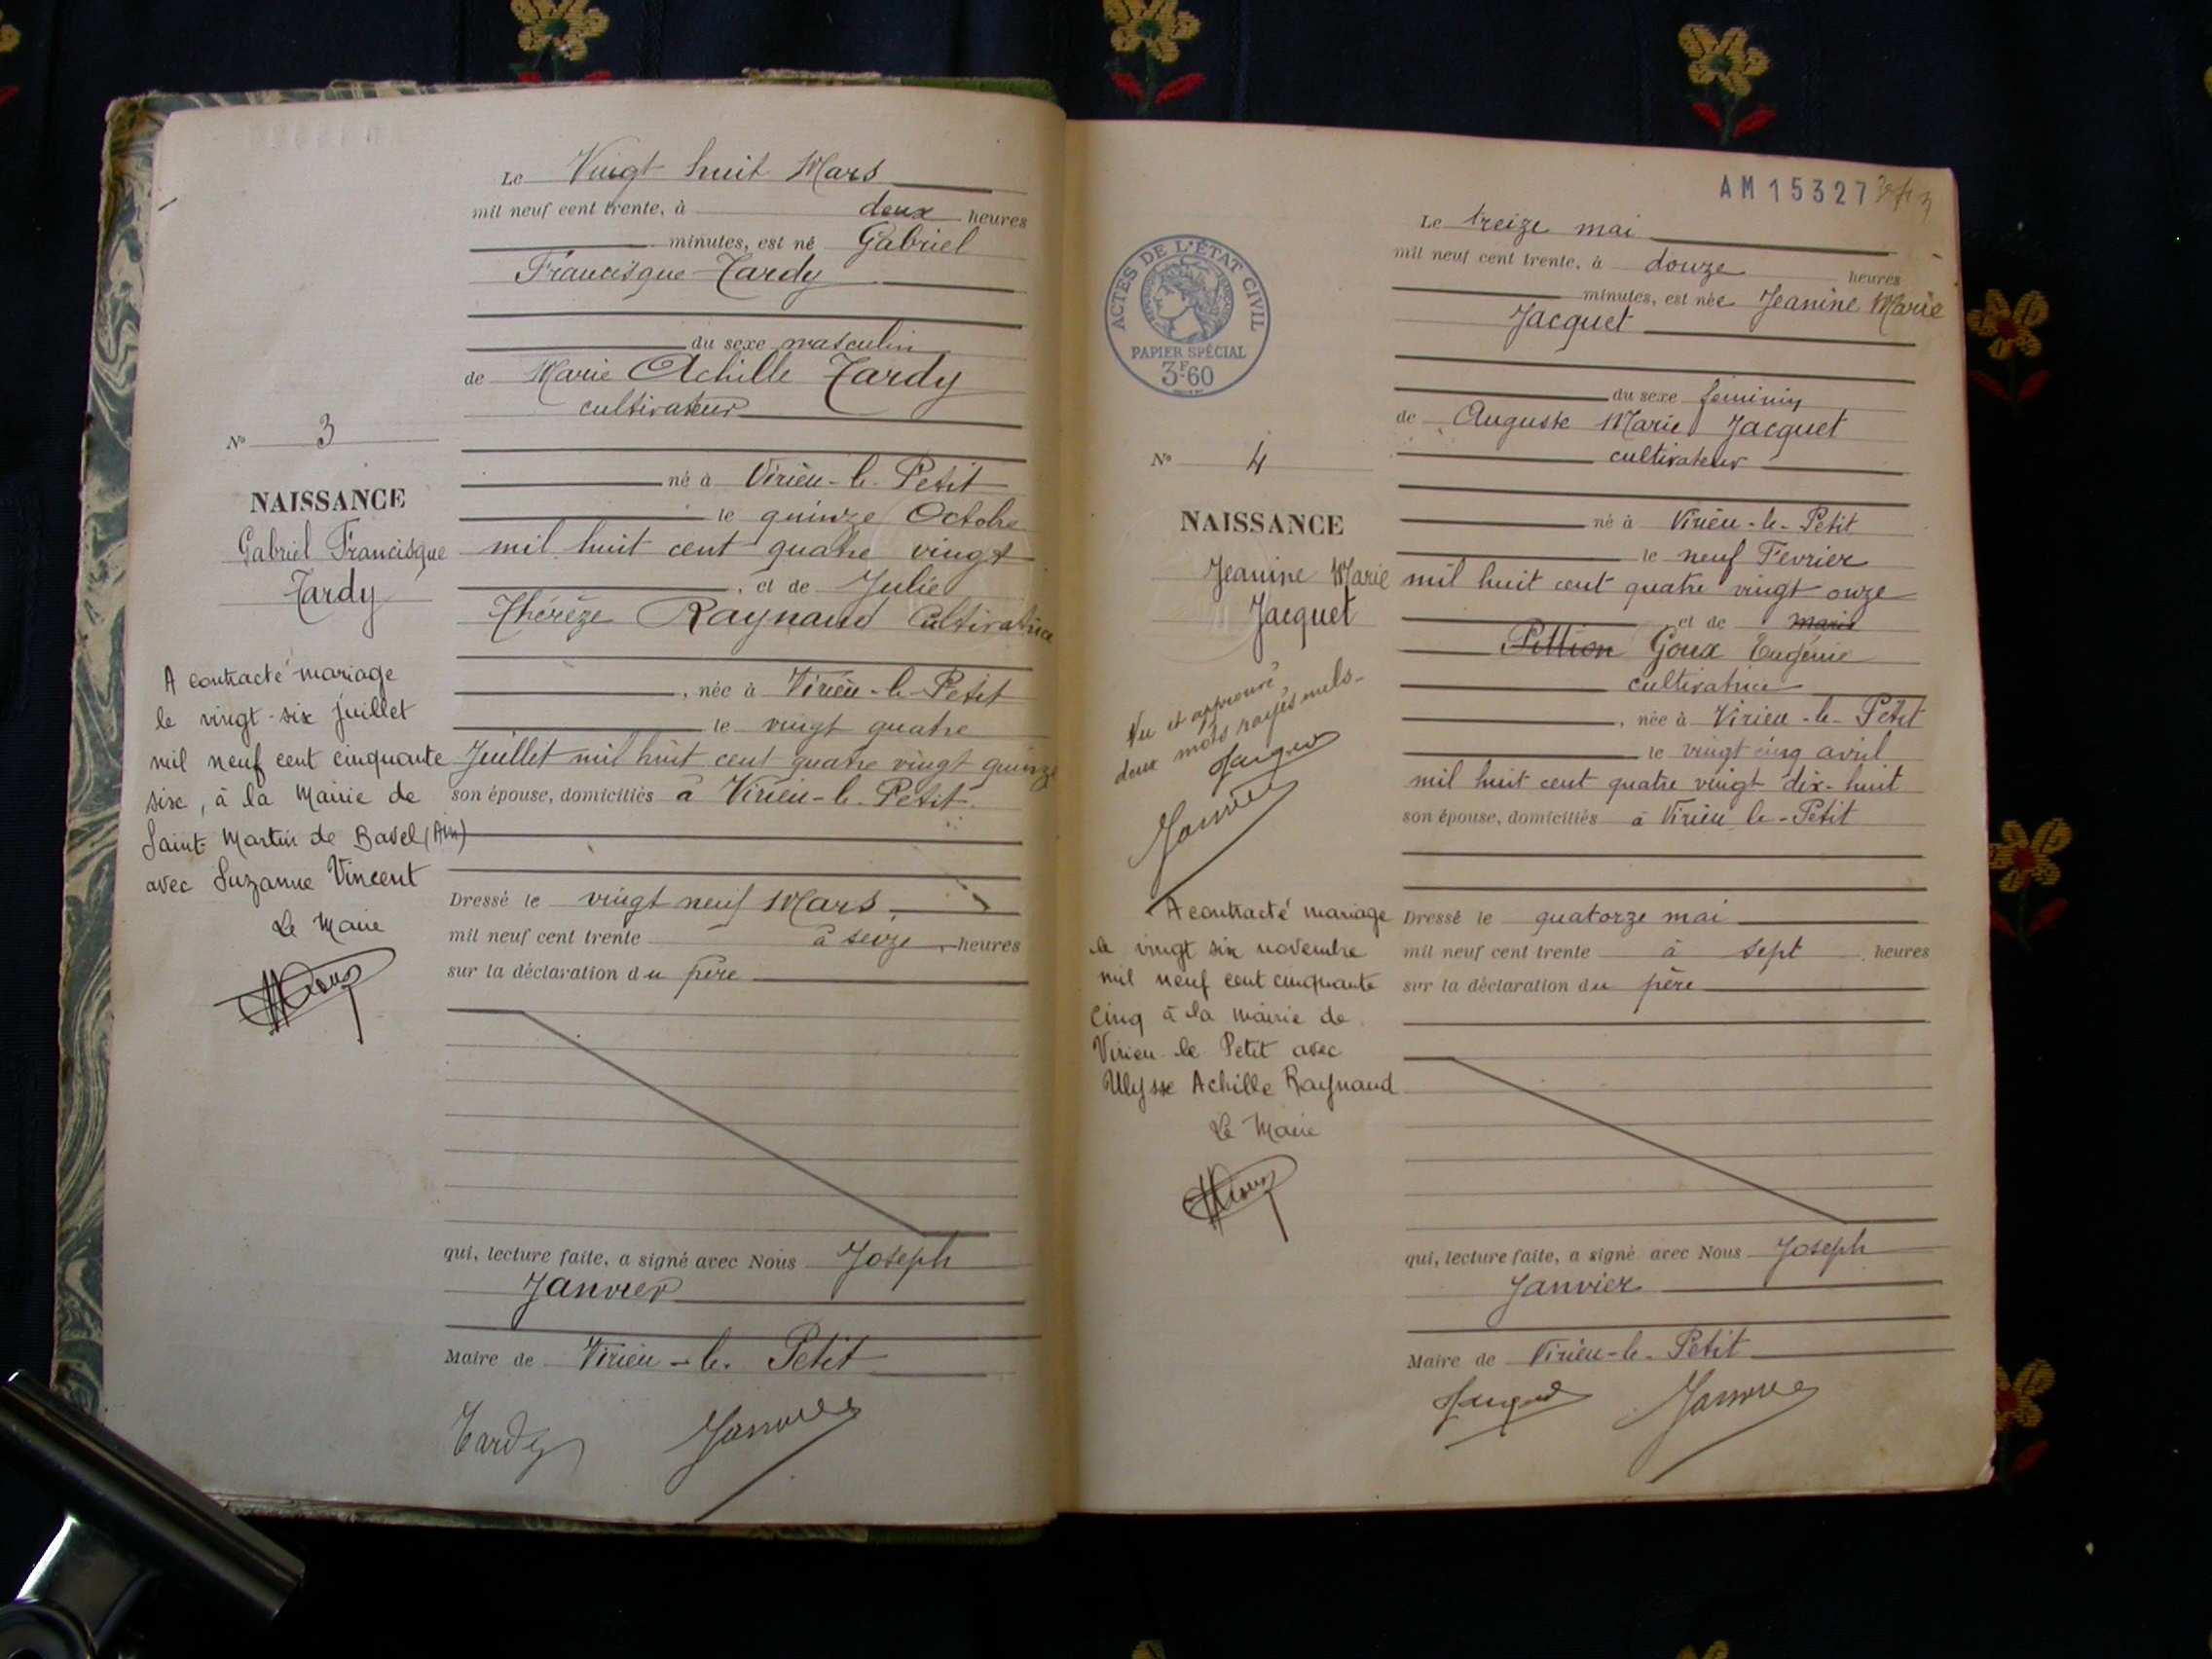 Le Vingt huit Mars
mil neuf cent trente, à deux heures
minutes, est né Gabriel
Francisque Tardy
du sexe masculin
de Marie Achille Tardy
cultivateur
né à Virieu-le-Petit
le quinze Octobre
mil huit cent quatre vingt
, et de Julie
Thérèze Raynaud Cultivatrice
, née à Virieu-le-Petit
le vingt quatre
Juillet mil huit cent quatre vingt quinze
son épouse, domiciliés à Virieu-le-Petit.
Dressé le vingt neuf Mars
mil neuf cent trente à seize heures
sur la déclaration du père
qui, lecture faite, a signé avec Nous Joseph
Janvier
Maire de Virieu-le-Petit
Tardy Janvier
No 3
NAISSANCE
Gabriel Francisque
Tardy
A contracté mariage
le vingt-six juillet
mil neuf cent cinquante
sixe, à la Mairie de
Saint Martin de Bavel (Ain)
avec Suzanne Vincent
Le Maire
AM 15327
Le treize mai
mil neuf cent trente, à douze heures
minutes, est née Jeanine Marie
Jacquet
du sexe féminin
de Auguste Marie Jacquet
cultivateur
né à Virieu-le-Petit
le neuf Fevrier
mil huit cent quatre vingt onze
et de marie
Pittion Goux Eugénie
cultivatrice
, née à Virieu-le-Petit
le vingt cinq avril
mil huit cent quatre vingt dix-huit
son épouse, domiciliés à Virieu le-Petit
Dressé le quatorze mai
mil neuf cent trente à sept heures
sur la déclaration du père
qui, lecture faite, a signé avec Nous Joseph
Janvier
Maire de Virieu-le-Petit
Jacquet Janvier
ACTES DE L'ÉTAT CIVIL
PAPIER SPÉCIAL
3F60
No 4
NAISSANCE
Jeanine Marie
Jacquet
Vu et approuvé
deux mots rayés nuls-
Jacquet
Janvier
A contracté mariage
le vingt six novembre
mil neuf cent cinquante
cinq à la mairie de
Virieu le Petit avec
Ulysse Achille Raynaud
Le Maire